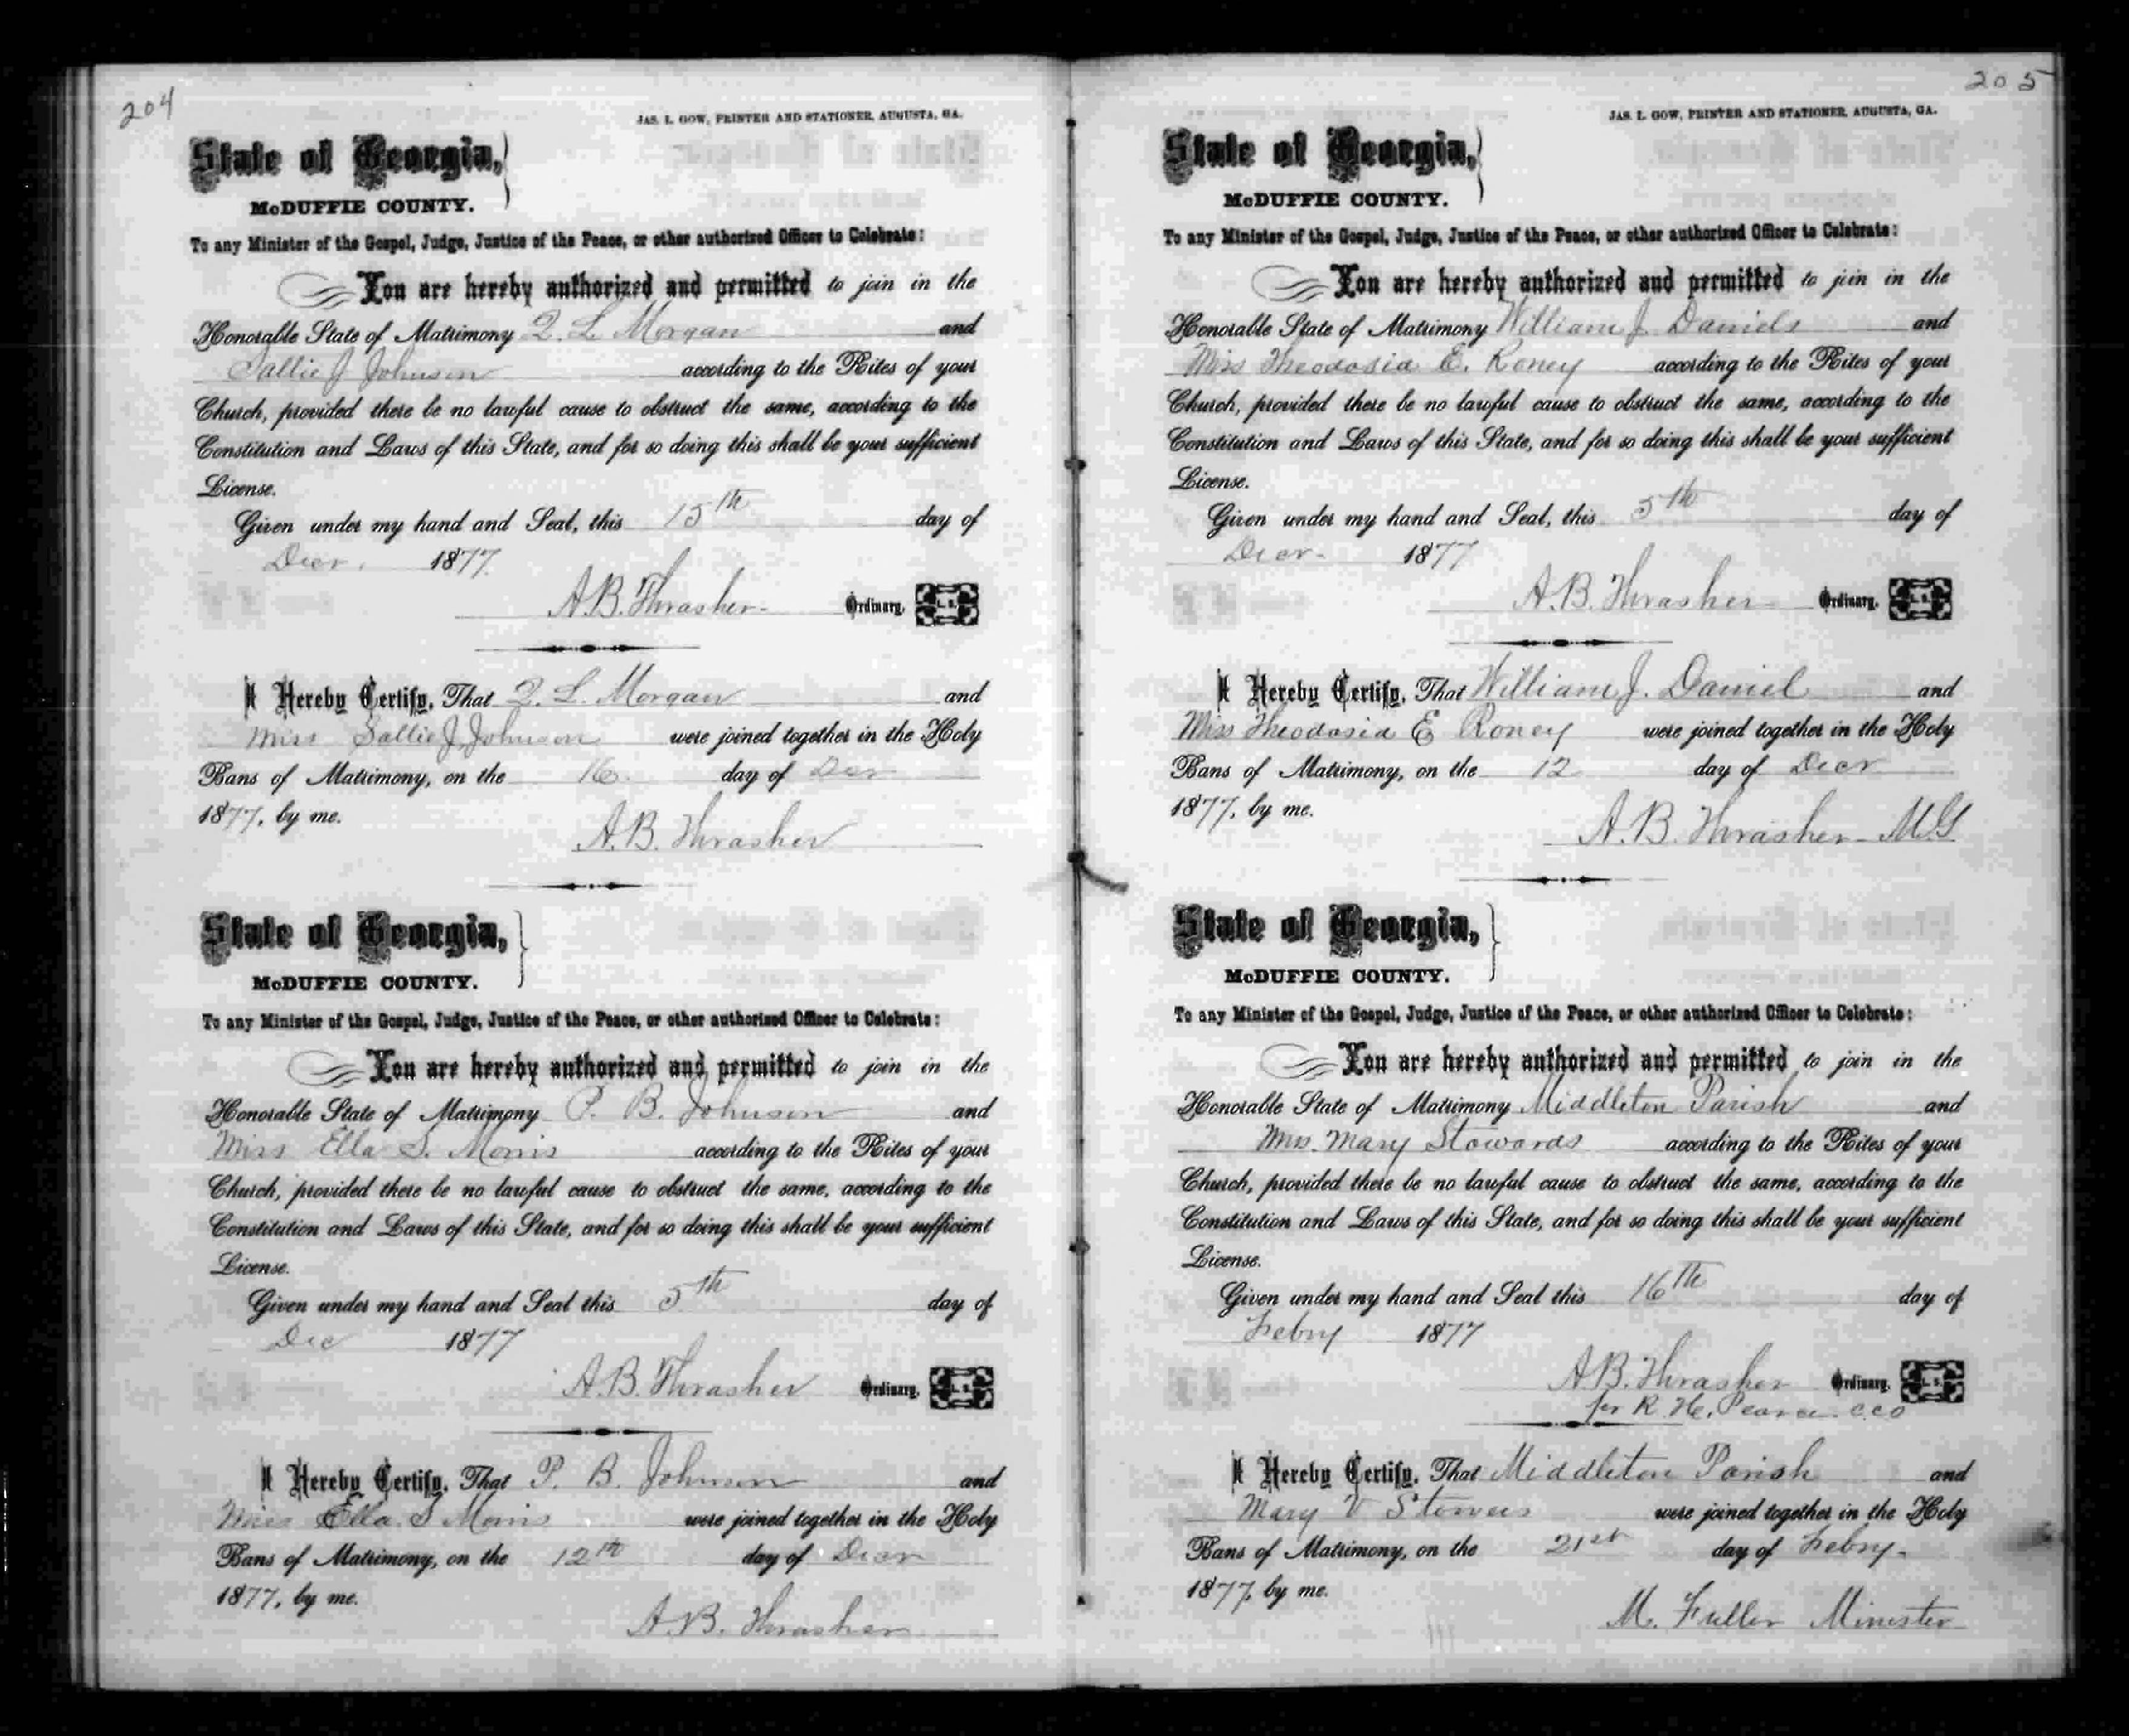 204
JAS. L. GOW, PRINTER AND STATIONER, AUGUSTA, GA.
State of Georgia,
McDUFFIE COUNTY.
To any Minister of the Gospel, Judge, Justice of the Peace, or other authorized Officer to Celebrate:
You are hereby authorized and permitted to join in the
Honorable State of Matrimony Q. L. Morgan and
Sallie J Johnson according to the Rites of your
Church, provided there be no lawful cause to obstruct the same, according to the
Constitution and Laws of this State, and for so doing this shall be your sufficient
License.
Given under my hand and Seal, this 15th day of
Decr. 1877
A.B. Thrasher Ordinary. L. S.
I Hereby Certify, That Q. L. Morgan and
Miss Sallie J. Johnson were joined together in the Holy
Bans of Matrimony, on the 16 day of Decr
1877, by me.
A.B. Thrasher
State of Georgia,
McDUFFIE COUNTY.
To any Minister of the Gospel, Judge, Justice of the Peace, or other authorized Officer to Celebrate:
You are hereby authorized and permitted to join in the
Honorable State of Matrimony P. B. Johnson and
Miss Ella S. Morris according to the Rites of your
Church, provided there be no lawful cause to obstruct the same, according to the
Constitution and Laws of this State, and for so doing this shall be your sufficient
License.
Given under my hand and Seal this 5th day of
Dec 1877
A.B. Thrasher Ordinary. L. S.
I Hereby Certify, That P. B. Johnson and
Miss Ella S Morris were joined together in the Holy
Bans of Matrimony, on the 12th day of Decr
1877, by me.
A.B. Thrasher
205
JAS. L. GOW, PRINTER AND STATIONER, AUGUSTA, GA.
State of Georgia,
McDUFFIE COUNTY.
To any Minister of the Gospel, Judge, Justice of the Peace, or other authorized Officer to Celebrate:
You are hereby authorized and permitted to join in the
Honorable State of Matrimony William J. Daniels and
Miss Theodosia E. Roney according to the Rites of your
Church, provided there be no lawful cause to obstruct the same, according to the
Constitution and Laws of this State, and for so doing this shall be your sufficient
License.
Given under my hand and Seal, this 5th day of
Decr- 1877
A.B. Thrasher Ordinary. L. S.
I Hereby Certify, That William J. Daniel and
Miss Theodosia E Roney were joined together in the Holy
Bans of Matrimony, on the 12 day of Decr
1877, by me.
A.B. Thrasher M.G
State of Georgia,
McDUFFIE COUNTY.
To any Minister of the Gospel, Judge, Justice of the Peace, or other authorized Officer to Celebrate:
You are hereby authorized and permitted to join in the
Honorable State of Matrimony Middleton Parish and
Mrs. Mary Stowards according to the Rites of your
Church, provided there be no lawful cause to obstruct the same, according to the
Constitution and Laws of this State, and for so doing this shall be your sufficient
License.
Given under my hand and Seal this 16th day of
Febry 1877
A.B. Thrasher Ordinary. L. S.
for R. H. Pearce. c.c.o
I Hereby Certify, That Middleton Parish and
Mary V Stowers were joined together in the Holy
Bans of Matrimony, on the 21st day of Febry-
1877, by me.
M. Fuller Minister